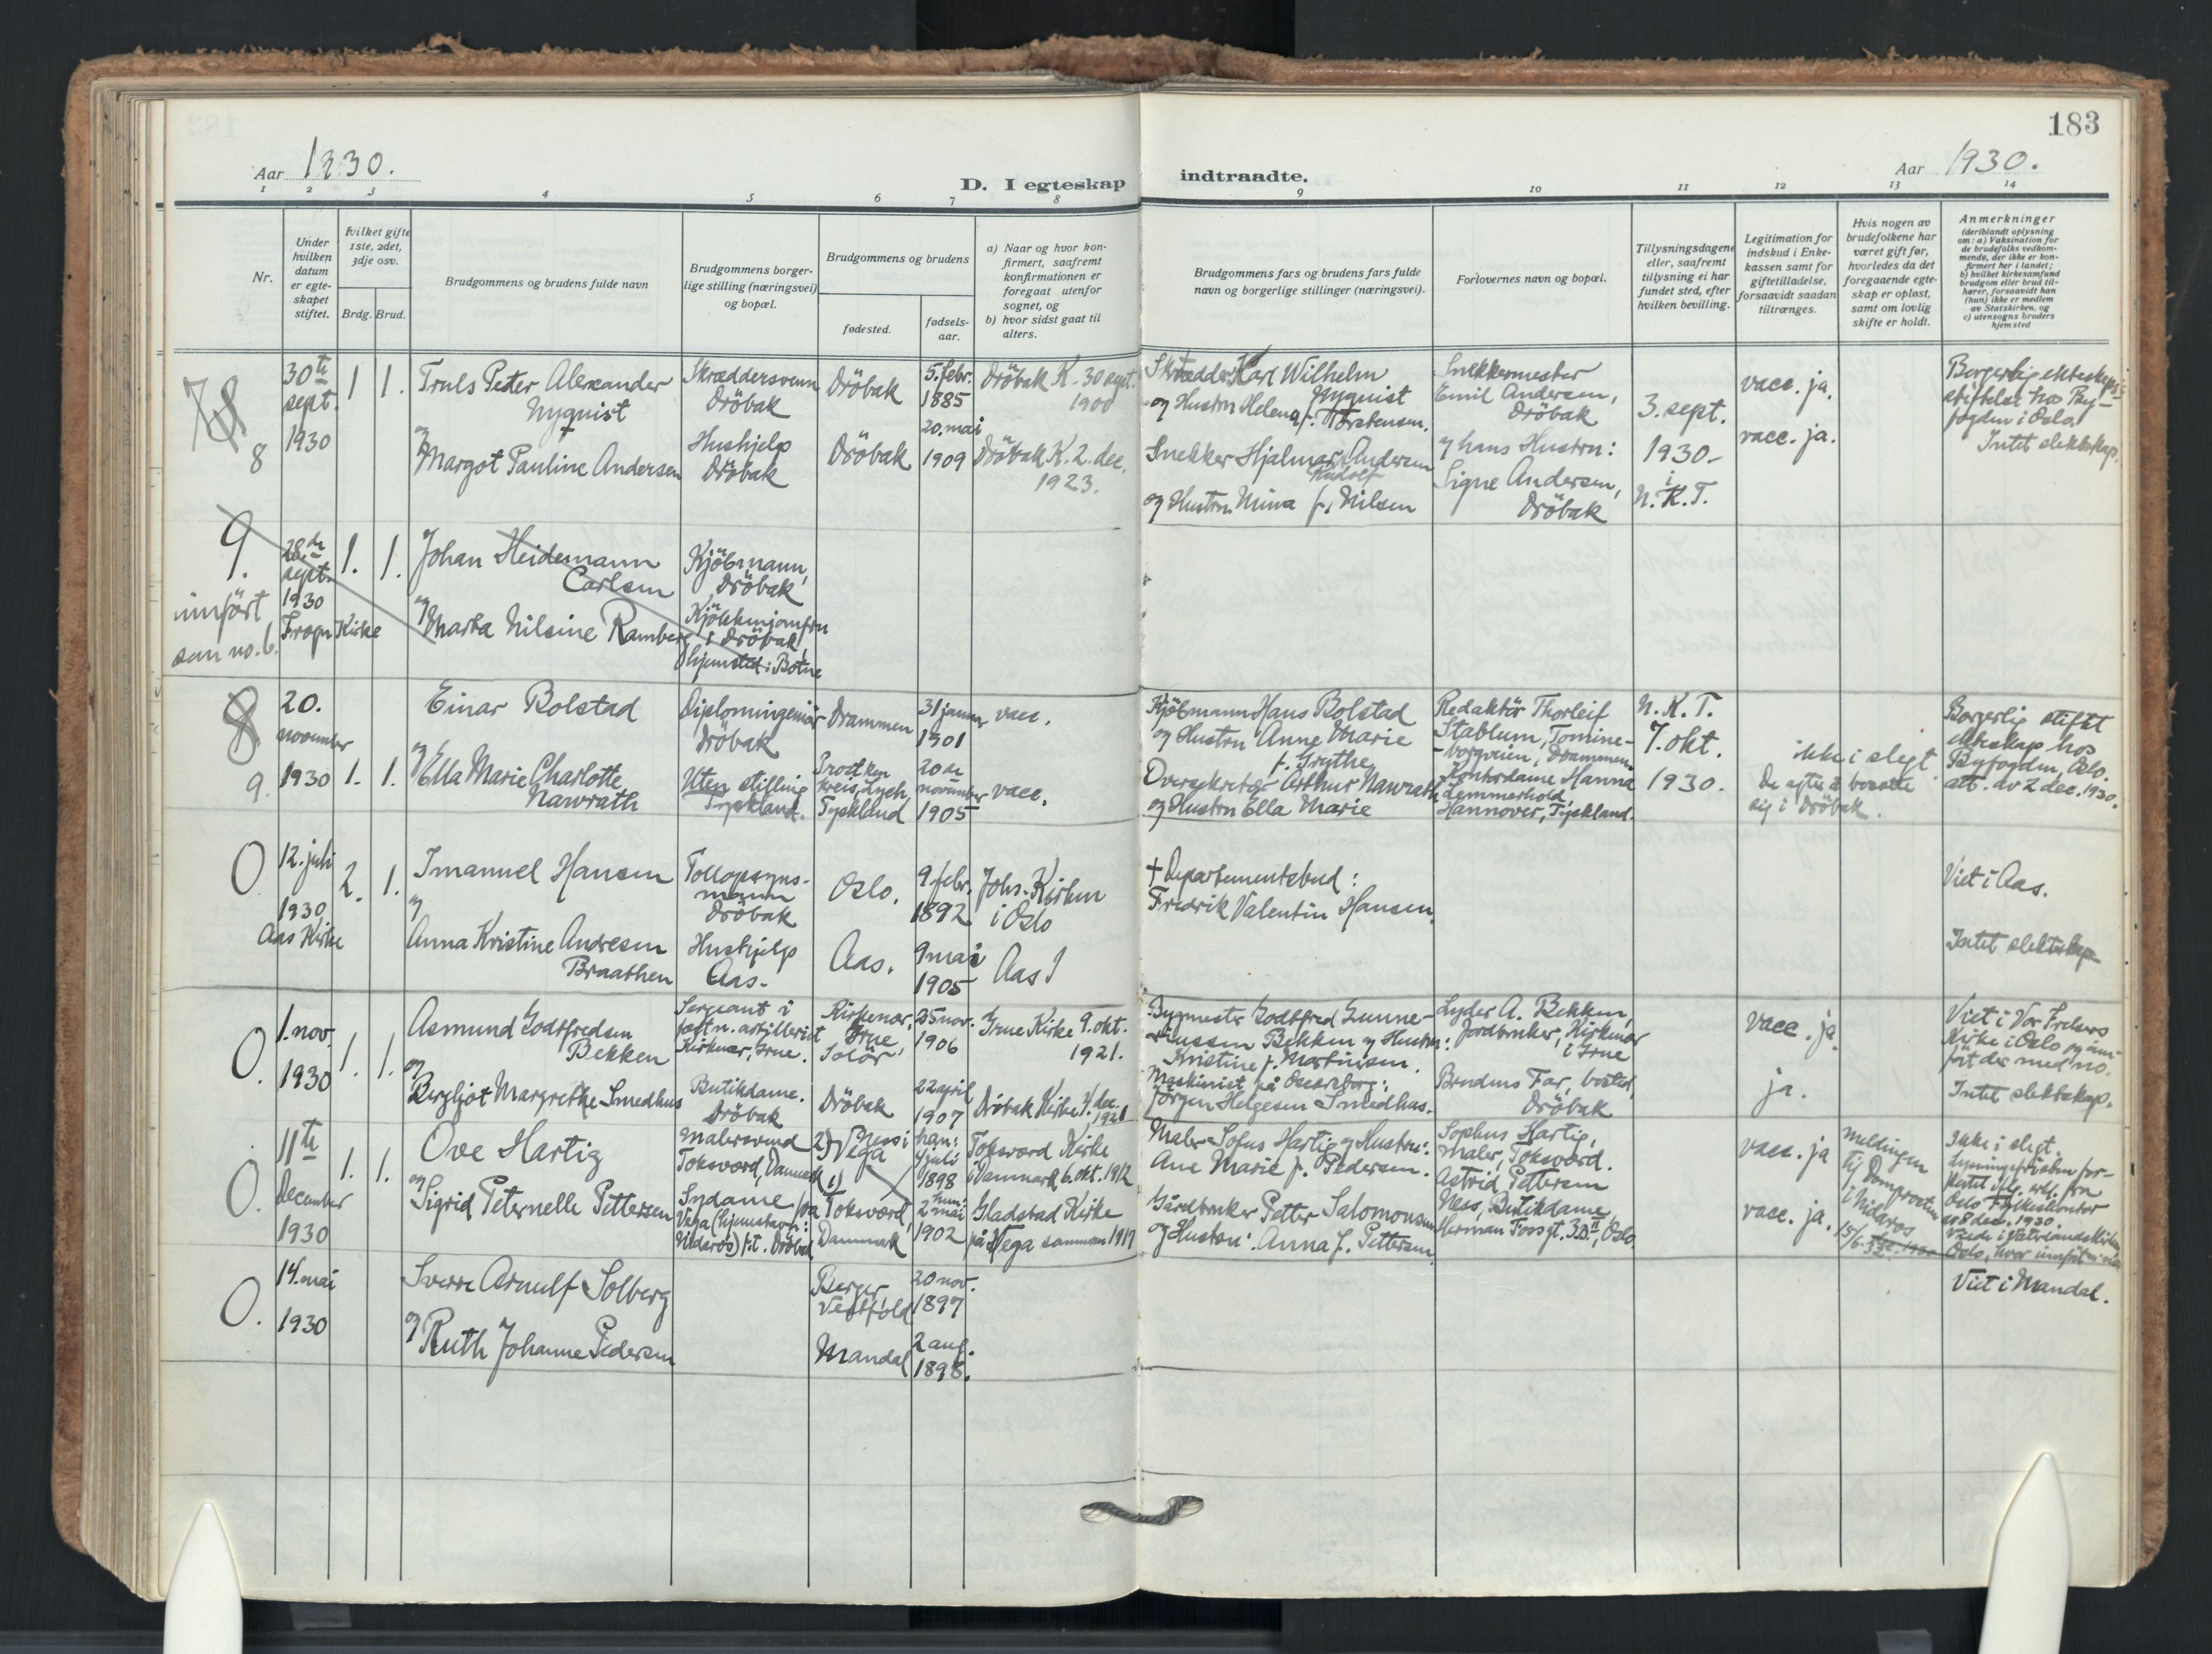 183
Aar 1930.
D. I egteskap
indtraadte.
Aar 1930.
1 2 3 4 5 6 7 8
9 10 11 12 13 14
Nr.
Under
hvilken
datum
er egte-
skapet
stiftet.
Hvilket gifte
1ste, 2det,
3dje osv.
Brdg. Brud.
Brudgommens og brudens fulde navn
Brudgommens borger-
lige stilling (næringsvei)
og bopæl.
Brudgommens og brudens
fødested.
fødsels-
aar.
a) Naar og hvor kon-
firmert, saafremt
konfirmationen er
foregaat utenfor
sognet, og
b) hvor sidst gaat til
alters.
Brudgommens fars og brudens fars fulde
navn og borgerlige stillinger (næringsvei).
Forlovernes navn og bopæl.
Tillysningsdagene
eller, saafremt
tillysning ei har
fundet sted, efter
hvilken bevilling.
Legitimation for
indskud i Enke-
kassen samt for
giftetilladelse,
forsaavidt saadan
tiltrænges.
Hvis nogen av
brudefolkene har
været gift før,
hvorledes da det
foregaaende egte-
skap er opløst,
samt om lovlig
skifte er holdt.
Anmerkninger
(deriblandt oplysning
om: a) Vaksination for
de brudefolks vedkom-
mende, der ikke er kon-
firmert her i landet;
b) hvilket kirkesamfund
brudgom eller brud til-
hører, forsaavidt han
(hun) ikke er medlem
av Statskirken, og
c) utensogns bruders
hjemsted
8
30te
sept.
1930
1 1.
Truls Peter Alexander
Nyquist
og
Margot Pauline Andersen
Skræddersvenn
Dröbak
Hushjelp
Dröbak
Dröbak
Dröbak
5. febr.
1885
20. mai
1909
Dröbak K. 30 sept.
1900
Dröbak K. 2. dec.
1923.
Skrædder Karl Wilhelm
Nyquist
og Hustru Helena f. Torstensen.
Snekker Hjalmar Andersen
Rudolf
og Hustru Mina f. Nilsen
Snekkermester
Emil Andersen,
Dröbak
og hans Hustru:
Signe Andersen,
Dröbak
3. sept.
1930-
i
N. K. T.
vacc. ja.
vacc. ja.
Borgerlig ekteskaps-
stiftelse hos By-
fogden i Oslo
Intet slektskap.
9.
innført
som no. 6.
28de
sept.
1930
Frogn Kirke
1. 1.
Johan Heidemann
Carlsen
og
Marta Nilsine Ramberg
Kjöbmann,
Dröbak
Kjökkenjomfru
i Dröbak,
hjemsted i Botne
8
9.
20.
november
1930
1. 1.
Einar Bolstad
og
Ella Marie Charlotte
Nawrath
Diplomingeniör
Dröbak
Uten stilling
Tyskland.
Drammen
Prostken
Kreis, Lyck,
Tyskland
31 januar
1901
20de
november
1905
vacc.
vacc.
Kjöbmann Hans Bolstad
og Hustru Anne Marie
f. Grythe
Oversekretær Arthur Nawrath
og Hustru Ella Marie
Redaktör Thorleif
Stablum, Tomine-
borgveien, Drammen
Kontordame Hanna
Lemmerhold,
Hannover, Tyskland.
N. K. T.
7. okt.
1930.
ikke i slegt
De agter å bosette
sig i Dröbak.
Borgerlig stiftet
ekteskap hos
Byfogden, Oslo.
att. av 2 dec. 1930.
0.
12. juli
1930
Aas Kirke
2. 1.
Imanuel Hansen
og
Anna Kristine Andresen
Braathen
Tollopsyns-
mann
Dröbak
Hushjelp
Aas.
Oslo.
Aas.
9 febr.
1892
9 mai
1905
Johs. Kirken
i Oslo
Aas
† Departementsbud:
Fredrik Valentin Hansen.
Viet i Aas.
Intet slektskap
0.
1. nov.
1930
1. 1.
Asmund Godtfredsen
Bekken
og
Bergljot Margrethe Smedhus
Sergeant i
festn. artilleriet
Kirkenær, Grue.
Butikdame.
Dröbak
Kirkenær,
Grue,
Solör
Dröbak
25 nov.
1906
22 april
1907
Grue Kirke 9. okt.
1921.
Dröbak Kirke 4. dec.
1921
Bygmester Godtfred Gunne-
riussen Bekken og Hustru:
Kristine f. Martinsen.
Maskinist på Oscarsborg:
Jörgen Helgesen Smedhus.
Lyder A. Bekken,
Jordbruker, Kirkenær
i Grue
Brudens Far, bosted
Dröbak
vacc. ja.
ja.
Viet i Vor Frelsers
Kirke i Oslo og inn-
fört der med no.
Intet slektskap.
0.
11te
december
1930
1. 1.
Ove Hartig
og
Sigrid Peternelle Pettersen
Malersvend
Toksværd, Danmark
Sydame fra
Vega (hjemstavn:
Nidaros) p.t. Dröbak
2) Ness i
Vega
1)
Toksværd,
Danmark
han:
4 juli
1898
hun:
2 mai
1902
Toksværd Kirke
i Danmark 6. okt. 1912
Gladstad Kirke
på Vega sommeren 1917
Maler Sofus Hartig og Hustru:
Ane Marie f. Pedersen.
Gårdbruker Petter Salomonsen
og Hustru: Anna f. Pettersen
Sophus Hartig,
Maler, Toksværd.
Astrid Pettersen
Ness, Butikdame,
Herman Fossgt. 3B II, Oslo.
vacc. ja
vacc. ja.
Meldingen
til Domprosten
i Nidaros
Ikke i slegt.
Lysningsfristen for-
Oslo Fylkeskontor
av 8 dec. 1930.
Oslo, hvor innfört
0.
14. mai
1930
Sverre Arnulf Solberg
og
Ruth Johanne Pedersen
Berger,
Vestfold
Mandal
20 nov.
1897
2 aug.
1898.
Viet i Mandal.